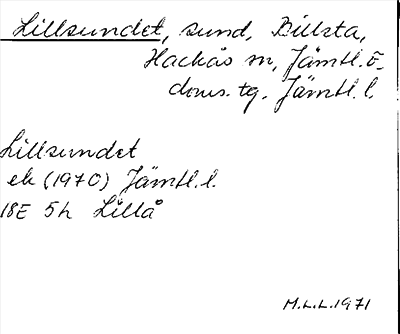 Lillsundet, sund, Billsta,
Hackås sn, Jämtl. ö.
doms. tg, Jämtl. l.
Lillsundet
ek (1970) Jämtl. l.
18E 5h Lillå
M.L.L. 1971